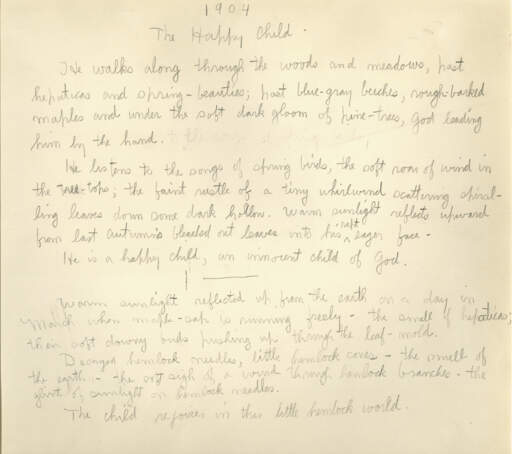 1904
The Happy Child.
He walks along through the woods and meadows, past
hepaticas and spring-beauties; past blue-gray beeches, rough-barked
maples and under the soft dark gloom of pine-trees, God leading
him by the hand.
He listens to the songs of spring birds, the soft roar of wind in
the tree-tops; the faint rustle of a tiny whirlwind scattering spiral-
ling leaves down some dark hollow. Warm sunlight reflects upward
from last autumn's bleached out leaves into his rapt eager face.
He is a happy child, an innocent child of God.
Warm sunlight reflected up from the earth on a day in
March when maple-sap is running freely - the smell of hepaticas;
their soft downy buds pushing up through the leaf-mold.
Decayed hemlock needles, little hemlock cones - the smell of
the earth - the soft sigh of a wind through hemlock branches - the
glint of sunlight on hemlock needles.
The child rejoices in this little hemlock world.